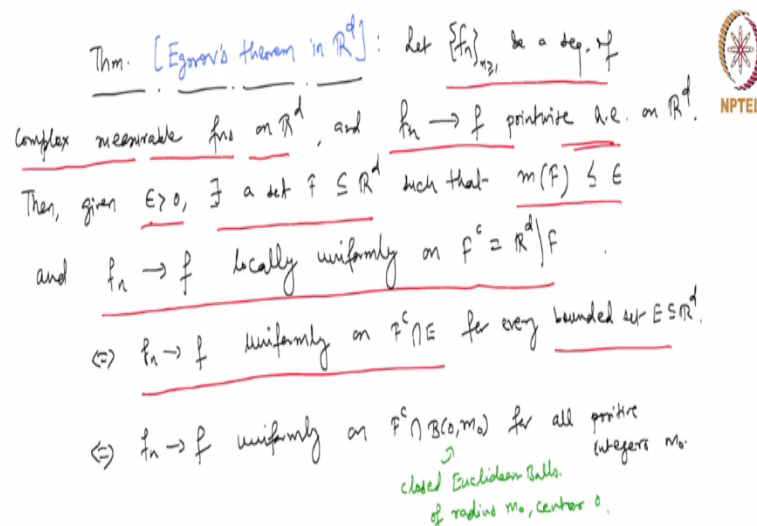 Thm. [Egorov's theorem in ℝ^d] : Let {f_n}_{n≥1} be a seq. of
Complex measurable fns on ℝ^d, and f_n → f pointwise a.e. on ℝ^d.
Then, given ε>0, ∃ a set F ⊆ ℝ^d such that m(F) ≤ ε
and f_n → f locally uniformly on F^c = ℝ^d\F .
⇔ f_n → f uniformly on F^c ∩ E for every bounded set E ⊆ ℝ^d.
⇔ f_n → f uniformly on F^c ∩ B(0,m_0) for all positive
integers m_0.
closed Euclidean Balls.
of radius m_0, center 0.
NPTEL